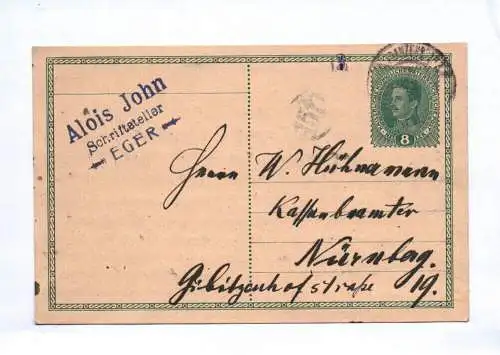 Alois John
Schriftsteller
EGER
8
Herrn W. Hühnermann
Kassenbeamter
Nürnbag.
Gibitzenhofstraße 19.